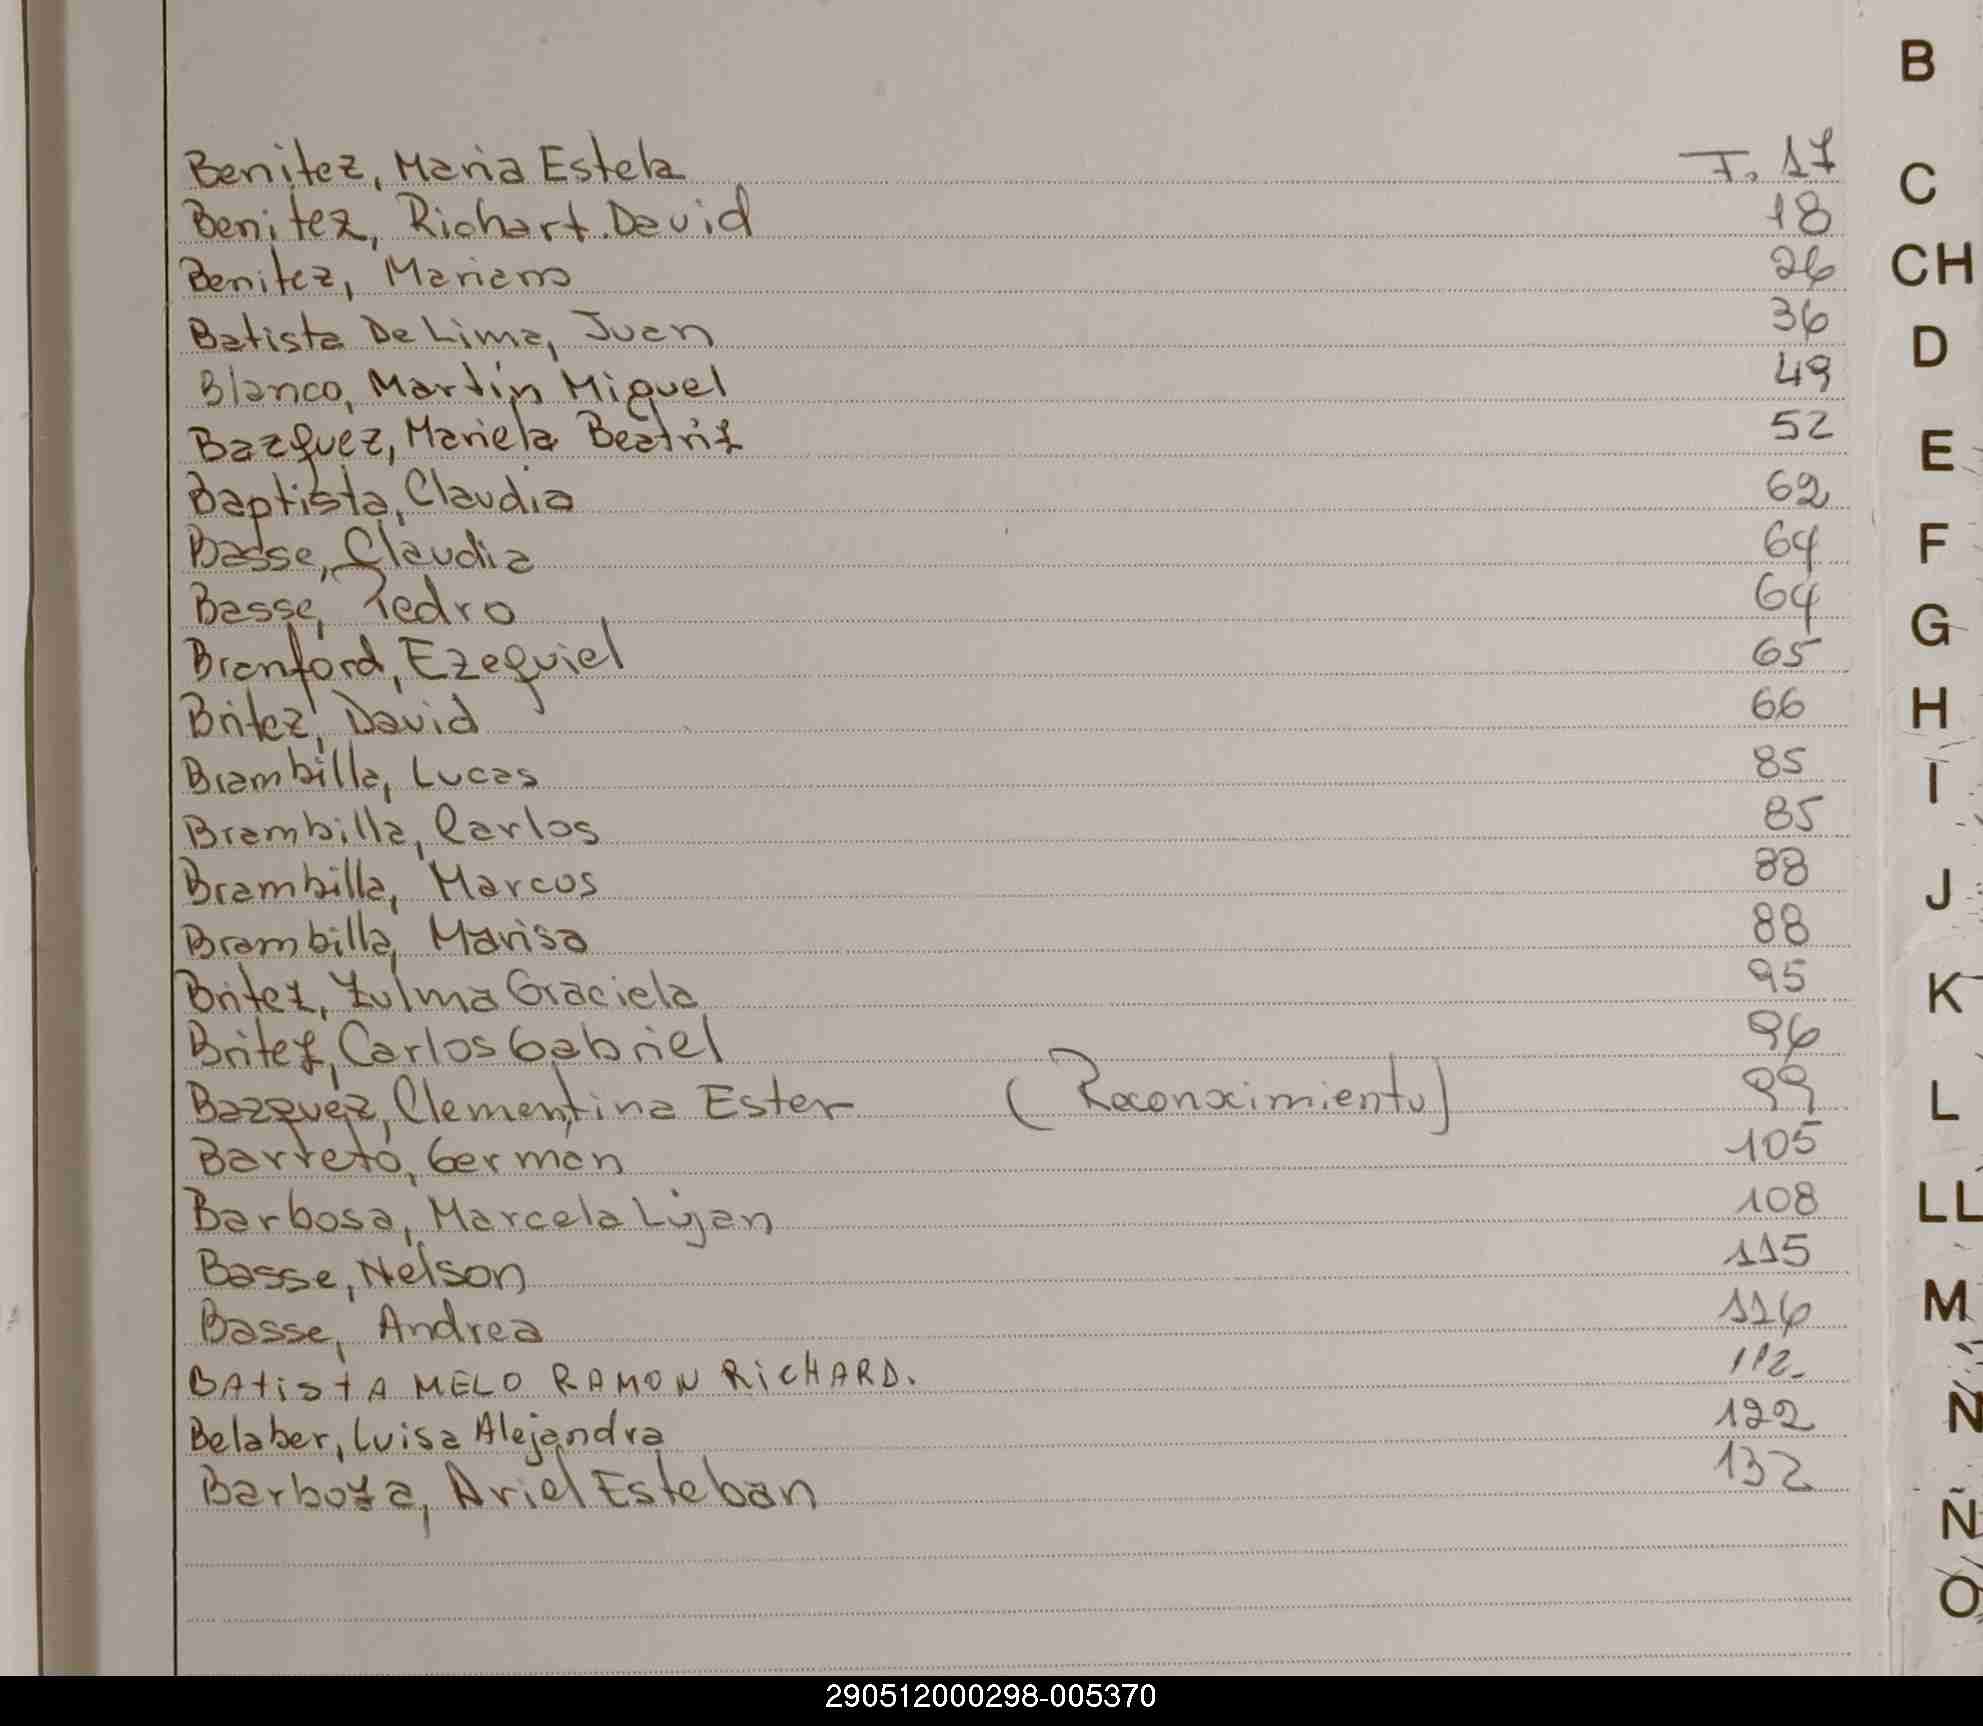 Benitez, Maria Estela F. 17
Benitez, Richart. David 18
Benitez, Mariano 26
Batista De Lima, Juan 36
Blanco, Martín Miguel 49
Bazquez, Mariela Beatriz 52
Baptista, Claudia 62
Basse, Claudia 64
Basse, Pedro 64
Branford, Ezequiel 65
Britez, David 66
Brambilla, Lucas 85
Brambilla, Carlos 85
Brambilla, Marcos 88
Brambilla, Marisa 88
Britez, Zulma Graciela 95
Britez, Carlos Gabriel 96
Bazquez, Clementina Ester (Reconocimiento) 99
Barreto, German 105
Barbosa, Marcela Lujan 108
Basse, Nelson 115
Basse, Andrea 116
BAtistA MELO RAMON RiCHARD. 112
Belaber, Luisa Alejandra 122
Barboza, Ariel Esteban 132
B
C
CH
D
E
F
G
H
I
J
K
L
LL
M
N
Ñ
O
290512000298-005370